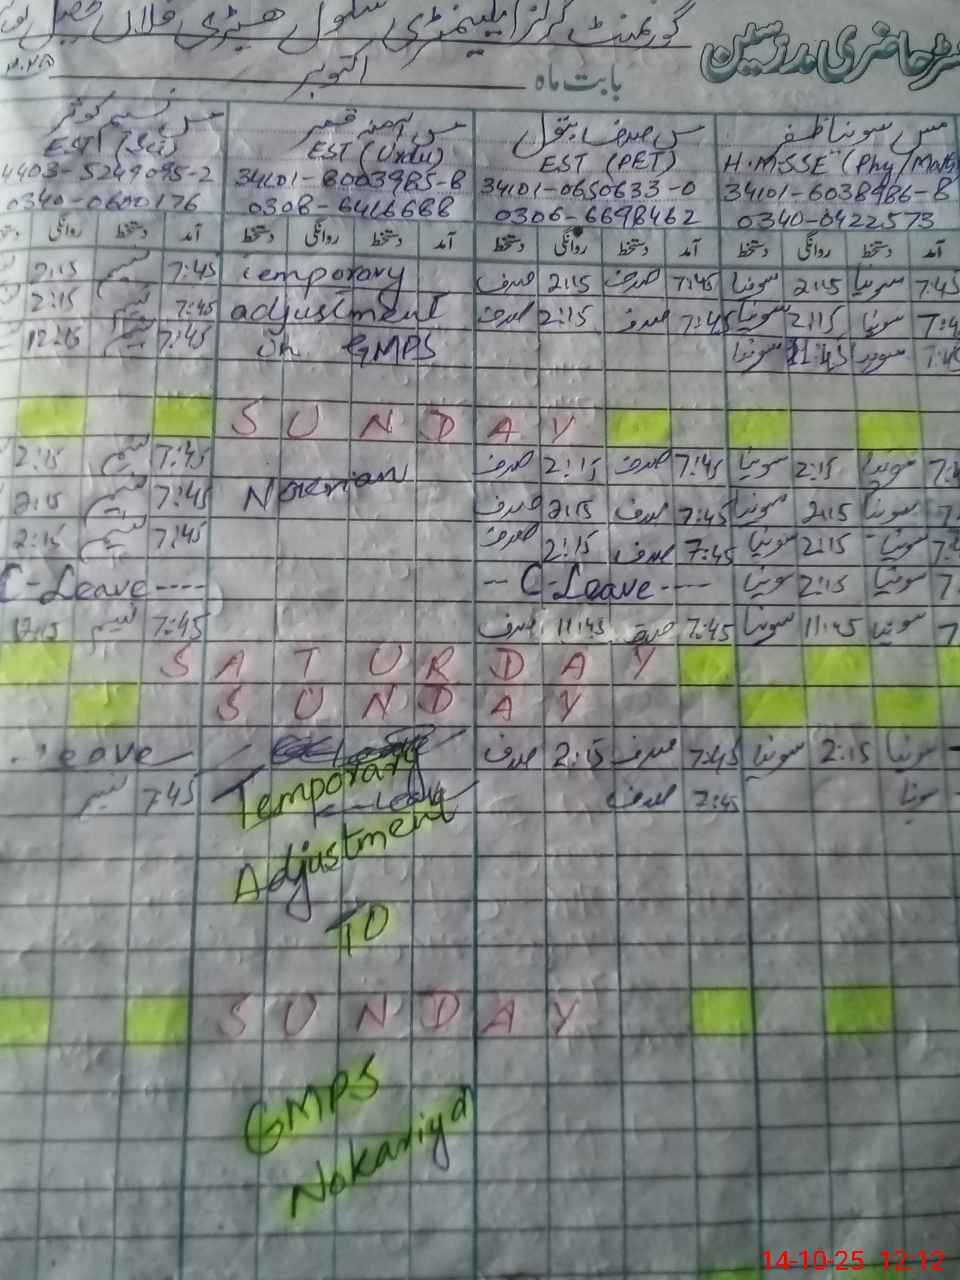 گورنمنٹ گرلز ایلیمنٹری سکول
رجسٹر حاضری مدرسین
بابت ماہ اکتوبر
مس سونیا ظفر مس صدف بتول مس آمنہ قمر مس نسیم کوثر
H.M SSE (Phy/Math EST (PET) EST (Urdu) EST (Sci)
34101-6038986-8 34101-0650633-0 34101-8003985-8 4403-5249095-2
0340-0422573 0306-6698462 0308-6416688 0340-0600176
آمد دستخط روانگی دستخط آمد دستخط روانگی دستخط آمد دستخط روانگی دستخط آمد دستخط روانگی
7:45 سونیا 2:15 سونیا 7:45 صدف 2:15 صدف Temporary 7:45 نسیم 2:15
7:4 سونیا 2:15 سونیا 7:45 صدف 2:15 صدف adjustment 7:45 نسیم 2:15
سونیا 11:45 سونیا in GMPS 7:45 نسیم
SUNDAY
7:4 سونیا 2:15 سونیا 7:45 صدف 2:15 صدف 7:45 نسیم 2:15
7: سونیا 2:15 سونیا 7:45 صدف 2:15 صدف 7:45 نسیم 2:15
سونیا 2:15 سونیا 7:45 صدف 2:15 صدف 7:45 نسیم 2:15
7: سونیا 2:15 سونیا -- C-Leave ---- C-Leave ----
7 سونیا 11:45 سونیا 7:45 صدف 11:45 صدف 7:45 نسیم
SATURDAY
SUNDAY
سونیا 2:15 سونیا 7:45 صدف 2:15 صدف Leave
7:45 صدف Temporary 7:45 نسیم
Adjustment
TO
SUNDAY
GMPS
Nokariya
14-10-25 12:12